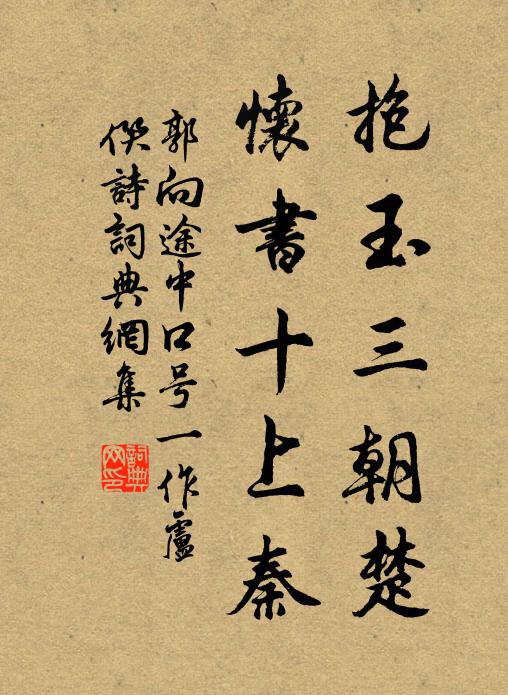 抱玉三朝楚
懷書十上秦
郭向途中口号一作盧
僎詩詞典網集
詞典网印